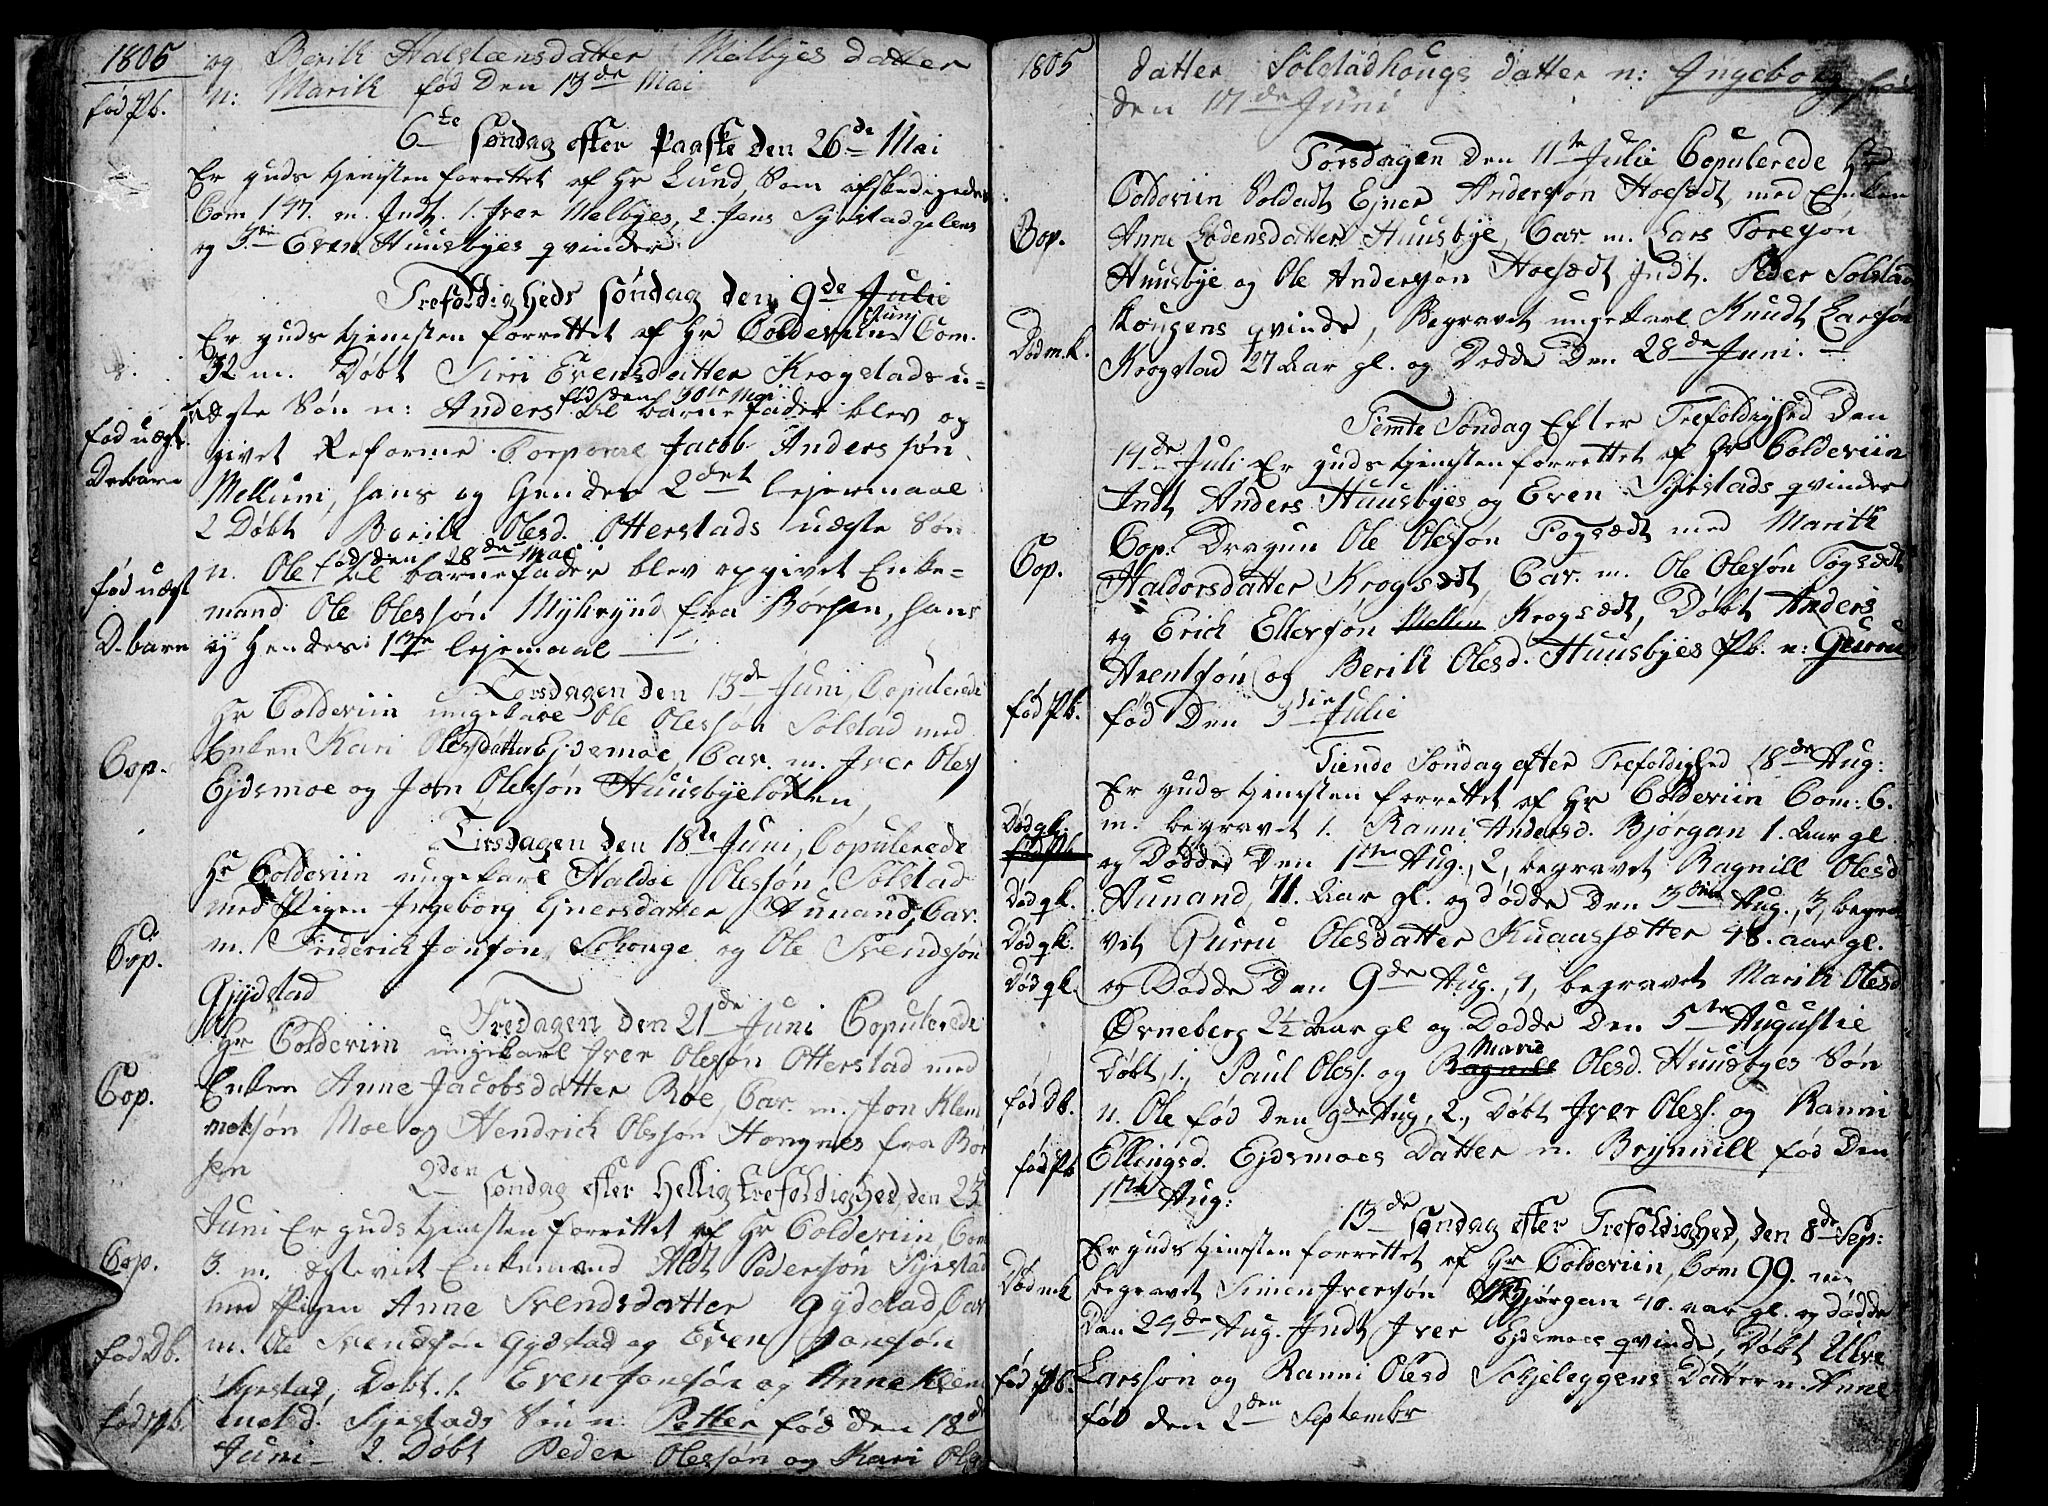 1805
og Berit Halstensdatter Melbyes datter
fød Pb.
n: Marit fød Den 13de Mai
6te søndag efter Paaske den 26de Mai
Er guds tjenisten forrettet af Hr Lund, Som afskedigede
Com 147. m. Indt. 1. Iver Melbyes, 2. Jens Syrstadgelens
og 3die Even Huusbyes qvinder
Trefoldigheds søndag den 9de Julie
Junj
Er guds tjenesten forrettet af Hr Colderiin Com.
32 m. Døbt Sirri Evensdatter Krogstads u-
fød den 30te Mai
ægte Søn n: Anders til barnefader blev op
fød uægt.
givet Reforme Corporal Jacob Anderssøn
Drbarn
Mellum, hans og Hendes 2det lejermaal
2 Døbt Berit Olesd. Otterstads uægte Søn
fød den 28de Mai
n. Ole til barnefader blev opgivet Enke-
fød uægt
mand Ole Olessøn Myhrynd fra Børsen, hans
D-barn
og Hendes 1te lejemaal
Torsdagen den 13de Juni, Copulerede
Hr Colderiin ungekarl Ole Olessøn Solstad med
Cop.
Enken Kari Olesdatter Ejdsmoe, Cav. m. Iver Oless
Ejdsmoe og Jon Olessøn Huusbyeløkken,
Tirsdagen den 18de Juni, Copulerede
Hr Colderiin ungekarl Haldoe Olessøn Solstad
med Pigen Ingeborg Ejnersdatter Aunand, Cav.
Cop.
m. Friderich Jonsøn Schouge og Ole Svendssøn
Gjydstad
Fredagen den 21de Juni Copulerede
Hr Colderiin ungekarl Iver Olessøn Otterstad med
Cop.
Enken Anne Jacobsdatter Røe, Cav. m. Jon Klem
metsøn Moe og Hendrich Olessøn Hongnes fra Bør
sen
2den søndag efter Hellig trefoldighed, den 23
Juni Er guds tjenesten forrettet af Hr Colderiin Com
Cop.
3. m. ægteviet Enkemand Aldt Pederssøn Syrstad
med Pigen Anne Svendsdatter Gydstad, Cav
fød Db.
m. Ole Svendsøn Gydstad og Even Jonssøn
Syrstad, Døbt. 1. Even Jonsøn og Anne Klem
fød Pb.
metsd. Syrstads Søn n: Petter fød den 18de
Juni 2. Døbt Peder Olessøn og Kari Oles
1805
datter Solstadhougs datter n: Ingeborg fød
den 17de Juni
Torsdagen Den 11te Julie Copulerede Hr
Colderiin Soldadt Ejner Anderssøn Hoesædt, med Enken
Cop.
Anne Lodensdatter Huusbye, Cav. m. Lars Toresøn
Huusbye og Ole Anderssøn Hoesædt Indt. Peder Solstad
Død m.k.
hougens qvinde, Begravet ungekarl Knudt Larssøn
Krogstad 27 Aar gl. og Dødde Den 28de Juni.
Femte Søndag Efter Trefoldighed Den
14de Juli Er guds tjenisten forrettet af Hr Colderiin
Indt Anders Huusbyes og Even Syrstads qvinder
Cop. Dragun Ole Olessøn Fogsædt med Marith
Cop.
Haldorsdatter Krogsædt, Cav. m. Ole Olessøn Fogsædt
og Erich Ellevsøn Mellin Krogsædt, Døbt Anders
Arentsøn og Berit Olesd. Huusbyes Pb. n: Gurru
fød Pb.
fød Den 3die Julie
Tiende Søndag efter Trefoldighed 18de Aug:
Er guds tjenisten forrettet af Hr Colderiin Com: 6.
Død gk.
m. begravet 1. Ranni Andersd. Bjørgan 1. Aar gl
fød Pb.
og Dødde Den 1te Aug., 2, begravet Ragnill Olesd
Død qk.
Aunand, 71. Aar gl. og dødde Den 3die Aug., 3, begra
Død qk.
vet Gurru Olesdatter Kuaassætter 48. aar gl.
Død qk.
og Dødde Den 9de Aug., 4, begravet Marit Olesd
Ørneberg 2½ Aar gl og Dødde Den 5te Augustie
Marit
Døbt, 1, Paul Oless. og Ragnill Olesd. Huusbyes Søn
fød Db.
n. Ole fød den 9de Aug, 2., Døbt Iver Oless. og Ranni
fød Pb
Ellingsd. Ejdsmoes Datter n. Brynnill fød Den
1te Aug:
13de søndag efter Trefoldighed, den 8de Sep:
Er guds tjenesten forrettet af Hr Colderiin, Com 99. m
Død mk
begravet Simen Iversøn Bjørgan 40. aar gl. og dødde
Den 24de Aug. Indt Iver Ejdsmoes qvinde, Døbt Ulve
fød Pb.
Larssøn og Ranni Olesd Schjeleggens Datter n. Anne
fød den 2den Septembr